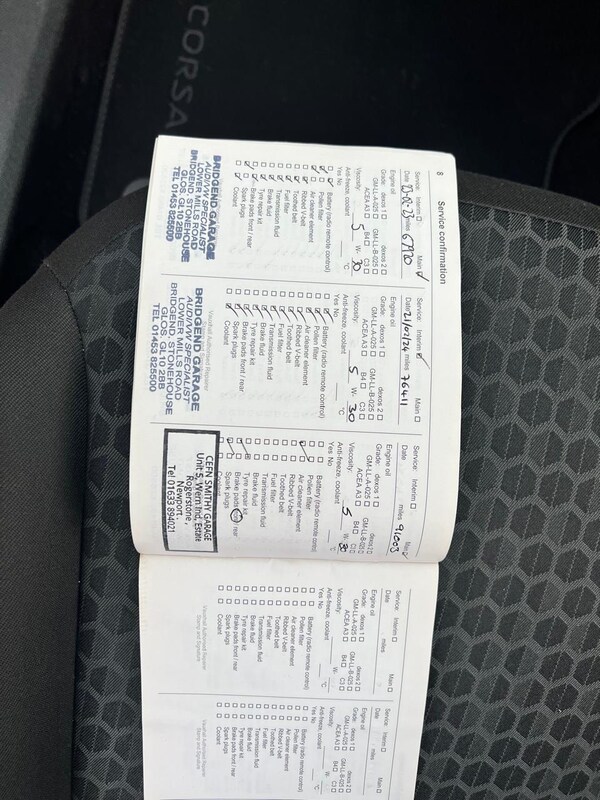 CORSA
8
Service confirmation
Service: Interim ☐ Main ✓
Date 23-02-23 miles 67970
Engine oil
Grade: dexos 1 ☐ dexos 2 ☐
GM-LL-A-025 ☐ GM-LL-B-025 ☐
ACEA A3 ☐ B4 ☐ C3 ☐
Viscosity: 5 W- 30
Anti-freeze, coolant °C
Yes No
Battery (radio remote control)
Pollen filter
Air cleaner element
Ribbed V-belt
Toothed belt
Fuel filter
Transmission fluid
Brake fluid
Tyre repair kit
Brake pads front / rear
Spark plugs
Coolant
BRIDGEND GARAGE
AUDI/VW SPECIALIST
LOWER MILLS ROAD
BRIDGEND STONEHOUSE
GLOS GL10 2BB
TEL 01453 825500
Service: Interim ✓ Main ☐
Date 21/02/24 miles 76411
Engine oil
Grade: dexos 1 ☐ dexos 2 ☐
GM-LL-A-025 ☐ GM-LL-B-025 ☐
ACEA A3 ☐ B4 ☐ C3 ☐
Viscosity: 5 W- 30
Anti-freeze, coolant °C
Yes No
Battery (radio remote control)
Pollen filter
Air cleaner element
Ribbed V-belt
Toothed belt
Fuel filter
Transmission fluid
Brake fluid
Tyre repair kit
Brake pads front / rear
Spark plugs
Coolant
Vauxhall Authorised Repairer
BRIDGEND GARAGE
AUDI/VW SPECIALIST
LOWER MILLS ROAD
BRIDGEND STONEHOUSE
GLOS GL10 2BB
TEL 01453 825500
Service: Interim ☐ Main
Date miles 91003
Engine oil
Grade: dexos 1 ☐ dexos 2 ☐
GM-LL-A-025 ☐ GM-LL-B-025 ☐
ACEA A3 ☐ B4 ☐ C3 ☐
Viscosity: 5 W- 30
Anti-freeze, coolant °C
Yes No
Battery (radio remote control)
Pollen filter
Air cleaner element
Ribbed V-belt
Toothed belt
Fuel filter
Transmission fluid
Brake fluid
Tyre repair kit
Brake pads front / rear
Spark plugs
Coolant
CEFN SMITHY GARAGE
Rogerstone,
Newport
Tel 01633 894021
Service: Interim ☐ Main ☐
Date miles
Engine oil
Grade: dexos 1 ☐ dexos 2 ☐
GM-LL-A-025 ☐ GM-LL-B-025 ☐
ACEA A3 ☐ B4 ☐ C3 ☐
Viscosity: W-
Anti-freeze, coolant °C
Yes No
Battery (radio remote control)
Pollen filter
Air cleaner element
Ribbed V-belt
Toothed belt
Fuel filter
Transmission fluid
Brake fluid
Tyre repair kit
Brake pads front / rear
Spark plugs
Coolant
Vauxhall Authorised Repairer
Stamp and Signature
Service: Interim ☐ Main ☐
Date miles
Engine oil
Grade: dexos 1 ☐ dexos 2 ☐
GM-LL-A-025 ☐ GM-LL-B-025 ☐
ACEA A3 ☐ B4 ☐ C3 ☐
Viscosity: W-
Anti-freeze, coolant °C
Yes No
Battery (radio remote control)
Pollen filter
Air cleaner element
Ribbed V-belt
Toothed belt
Fuel filter
Transmission fluid
Brake fluid
Tyre repair kit
Brake pads front / rear
Spark plugs
Coolant
Vauxhall Authorised Repairer
Stamp and Signature